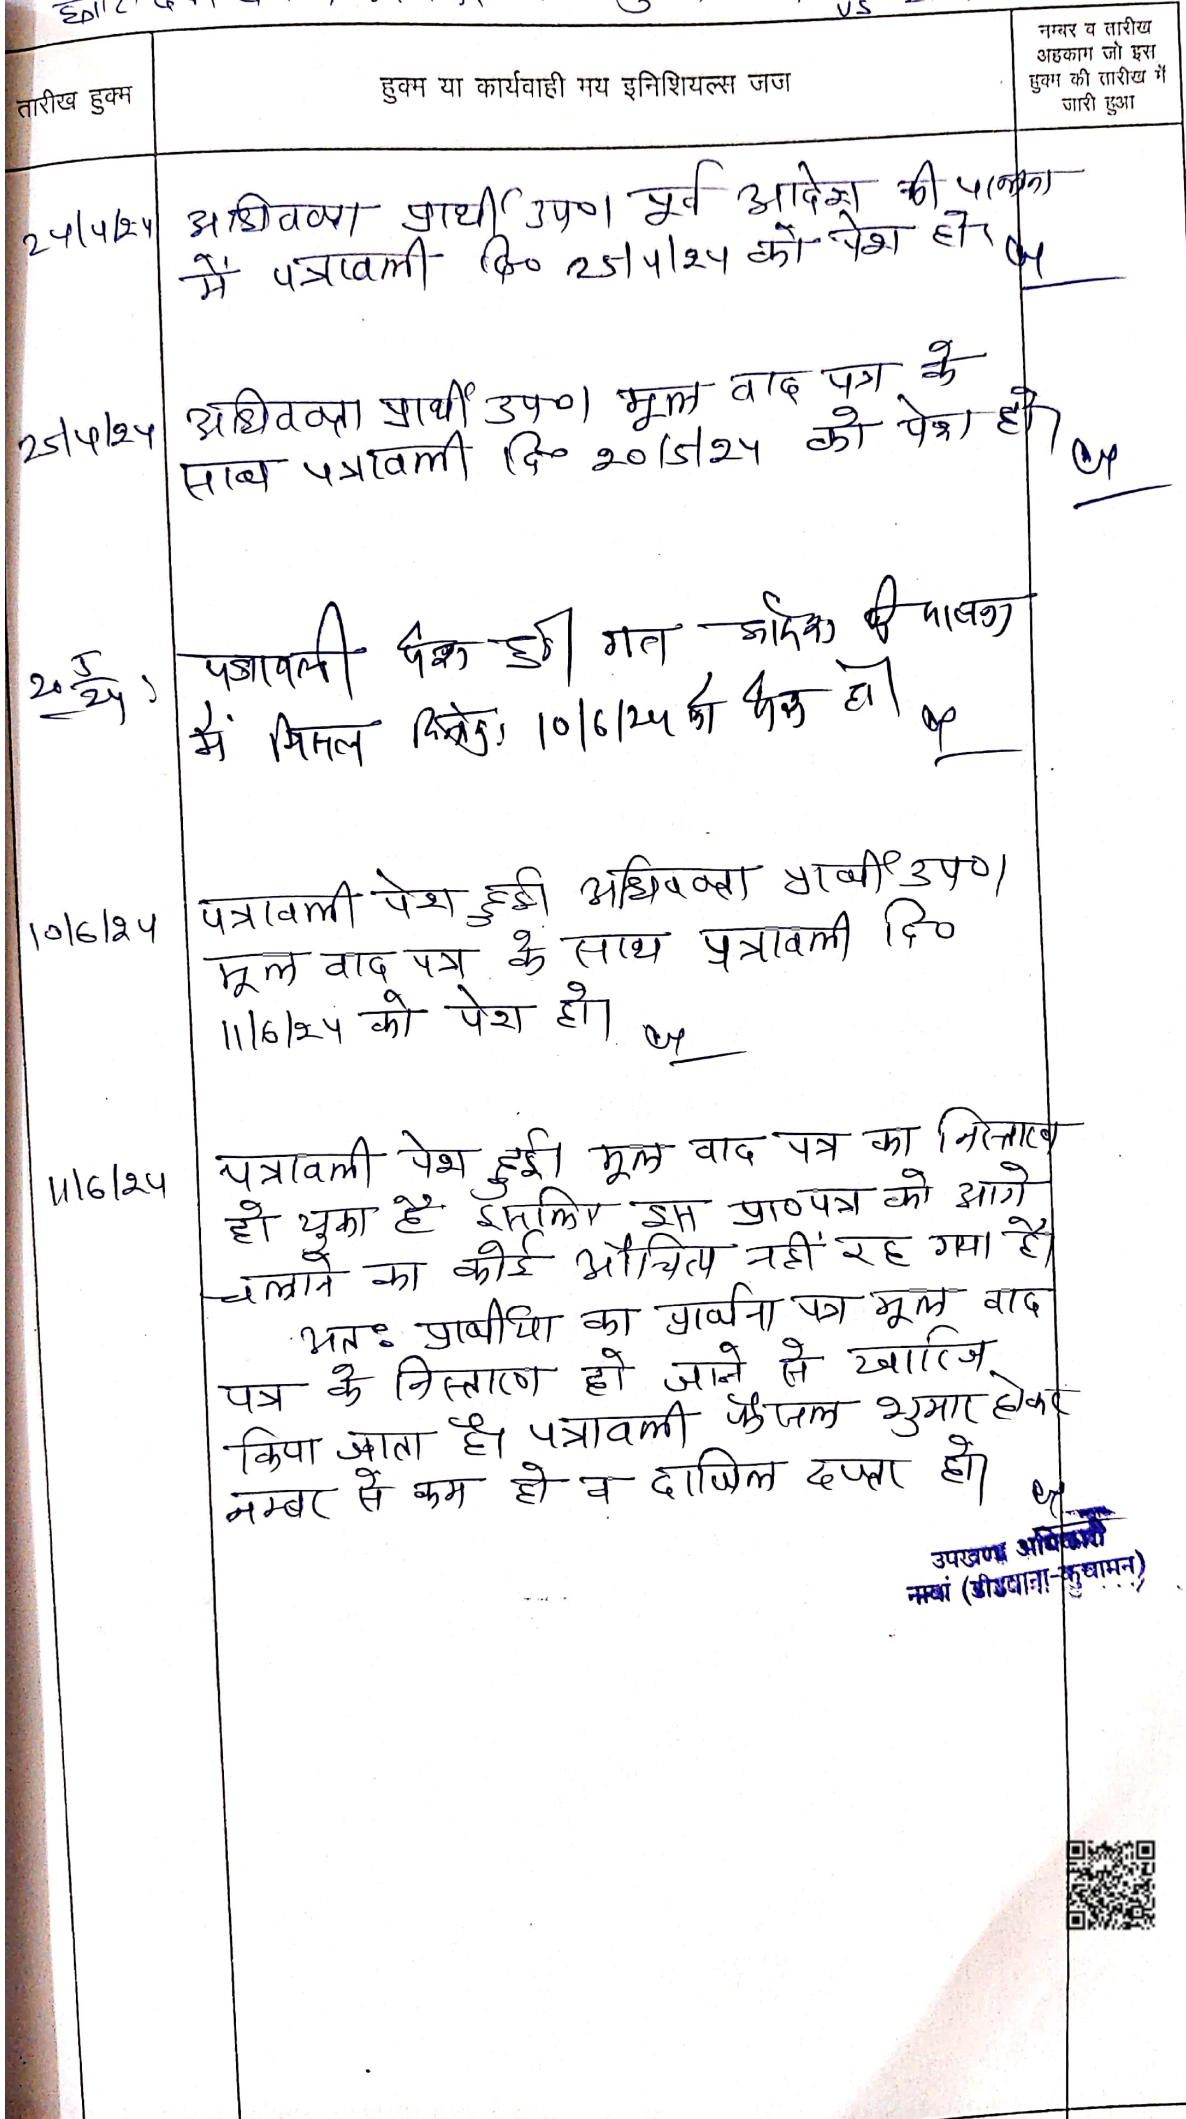 vs
तारीख हुक्म
हुक्म या कार्यवाही मय इनिशियल्स जज
नम्बर व तारीख
अहकाम जो इस
हुक्म की तारीख में
जारी हुआ
24/4/24 अधिवक्ता प्रार्थी उप०। पूर्व आदेश की पालना
में पत्रावली दि० 25/4/24 को पेश हो।
25/4/24 अधिवक्ता प्रार्थी उप०। मूल वाद पत्र के
साथ पत्रावली दि० 20/5/24 को पेश हो।
20/5/24 पत्रावली पेश हुई। गत आदेश की पालना
में मिसल दिनांक 10/6/24 को पेश हो।
10/6/24 पत्रावली पेश हुई। अधिवक्ता प्रार्थी उप०।
मूल वाद पत्र के साथ पत्रावली दि०
11/6/24 को पेश हो।
11/6/24 पत्रावली पेश हुई। मूल वाद पत्र का निस्तारण
हो चुका है इसलिए इस प्रा०पत्र को आगे
चलाने का कोई औचित्य नहीं रह गया है।
अतः प्रार्थीया का प्रार्थना पत्र मूल वाद
पत्र के निस्तारण हो जाने से खारिज
किया जाता है। पत्रावली फैजल शुमार होकर
नम्बर से कम हो व दाखिल दफ्तर हो।
उपखण्ड अधिकारी
नावां (डीडवाना-कुचामन)